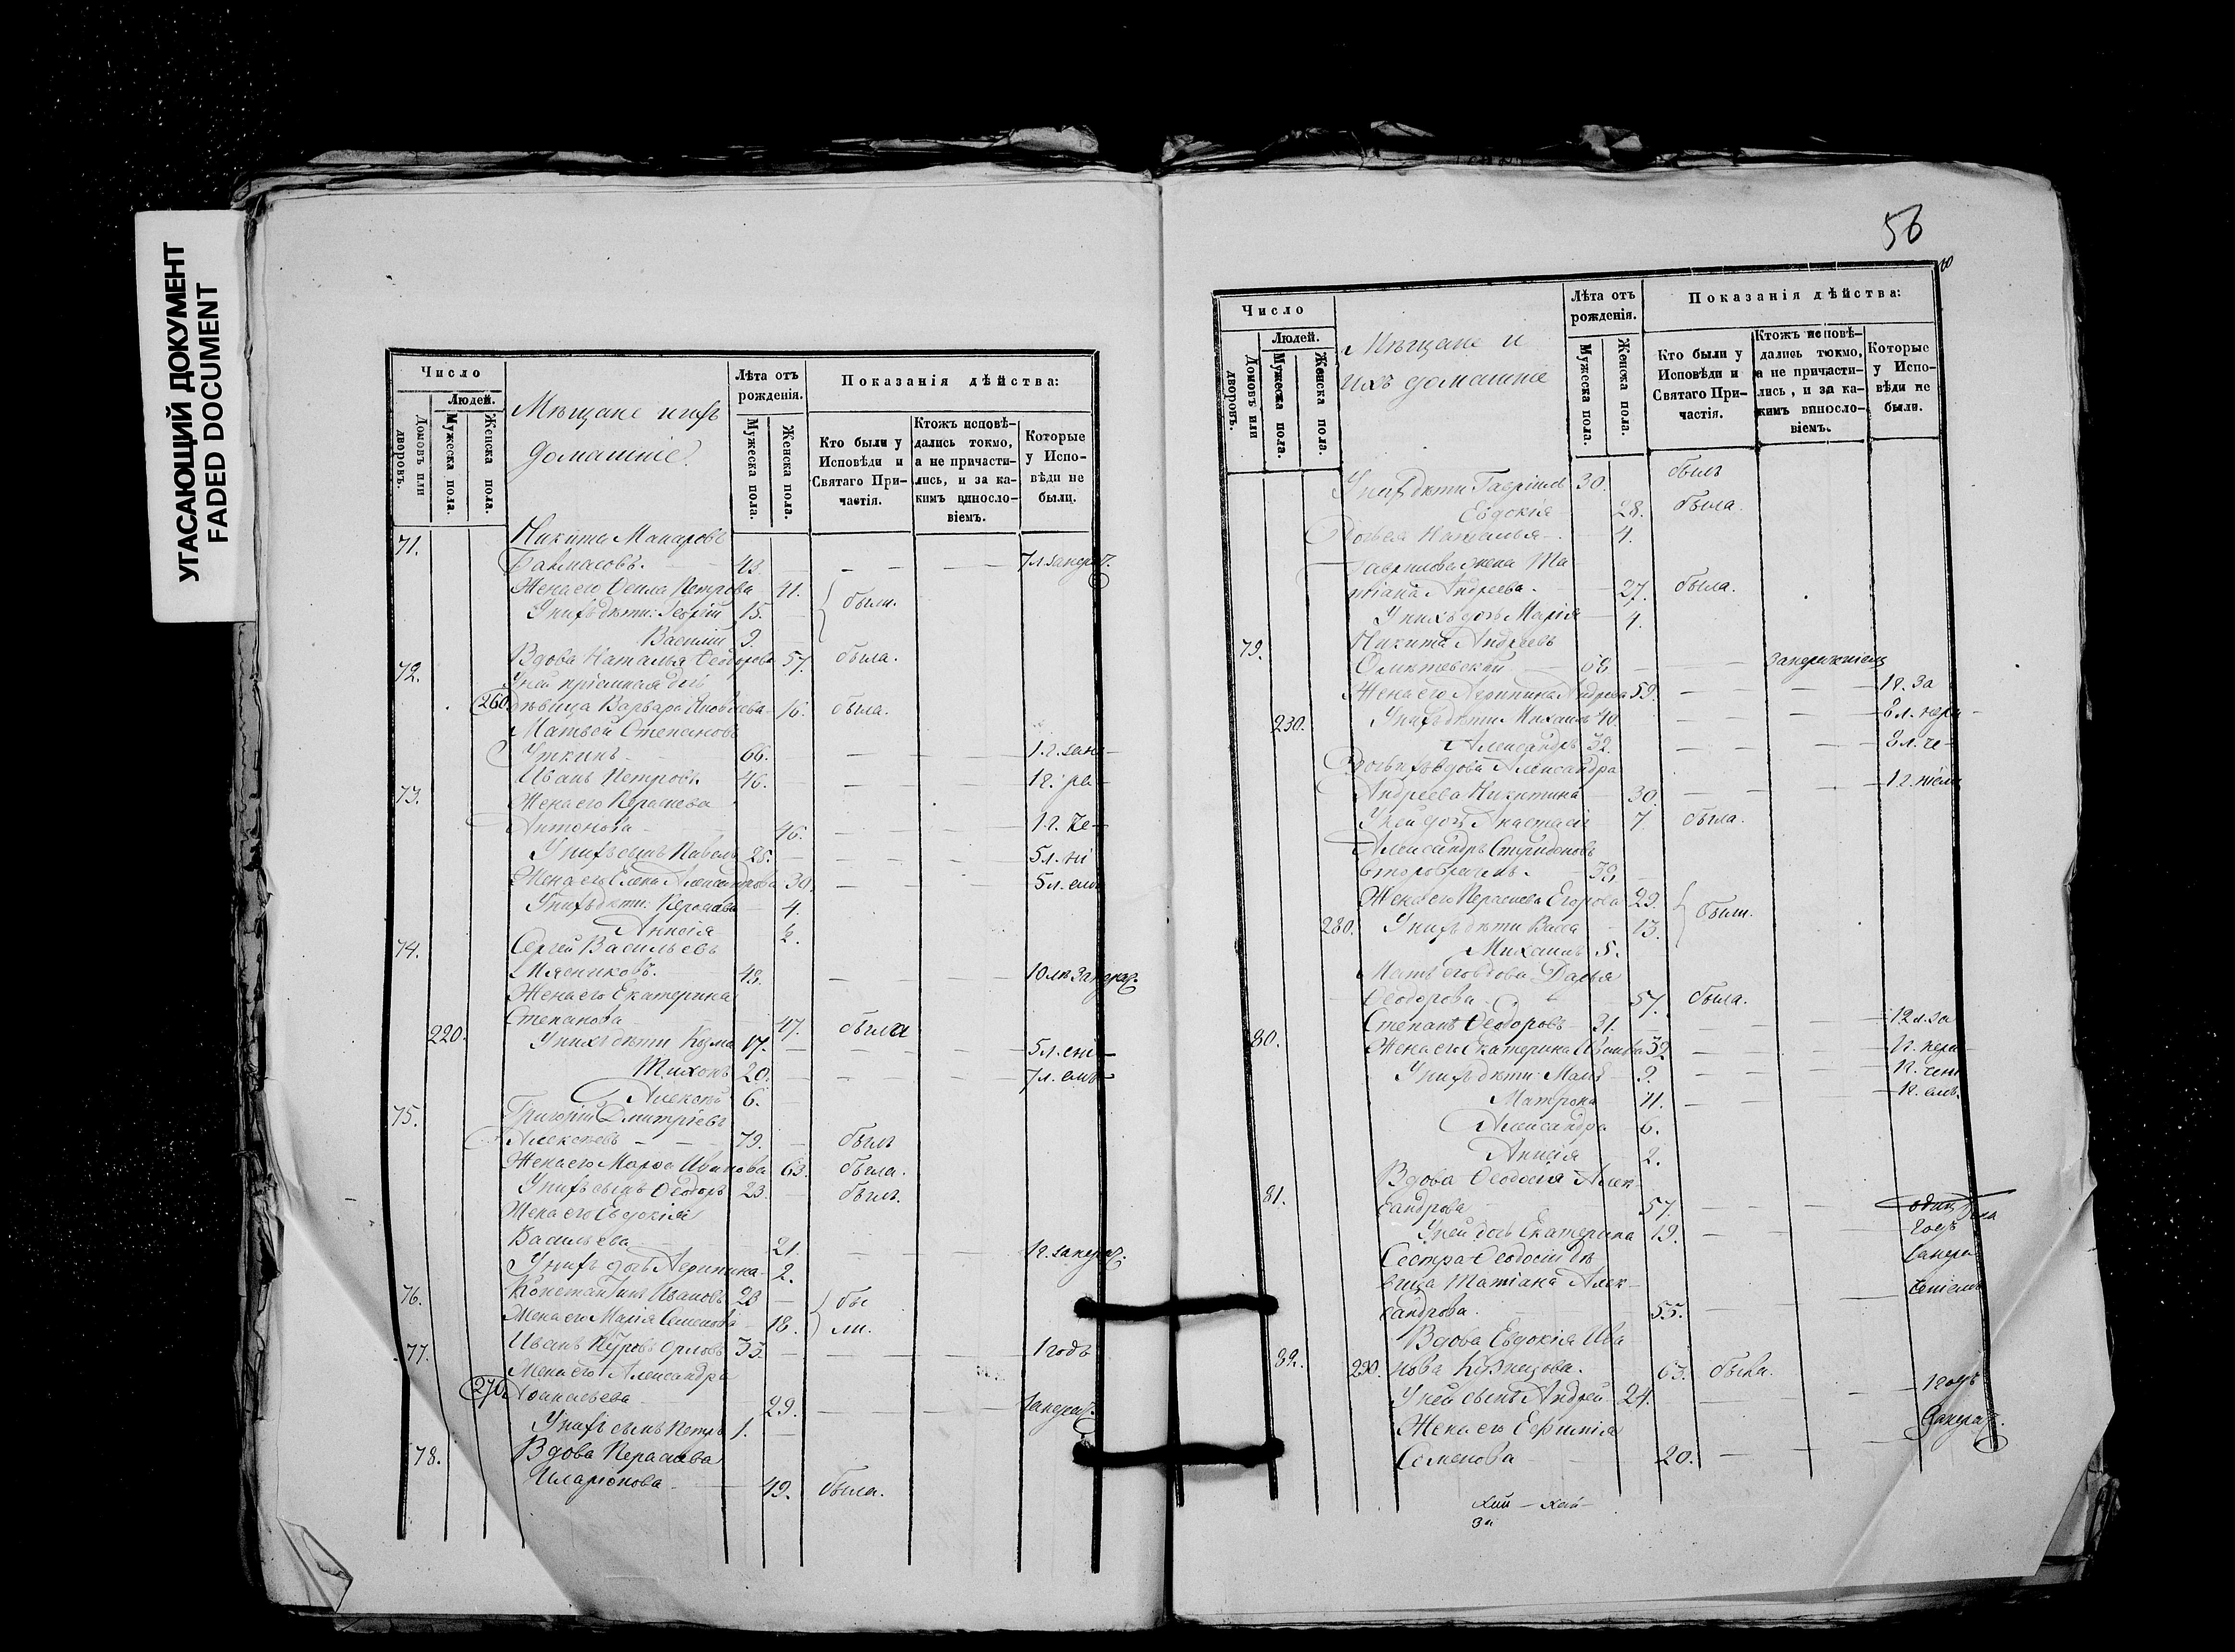 УГАСАЮЩИЙ ДОКУМЕНТ
FADED DOCUMENT
Число
Людей.
Домовъ или дворовъ.
Мужеска пола.
Женска пола.
Мѣщане и ихъ
домашніе.
Лѣта отъ рожденія.
Мужеска пола.
Женска пола.
Показанія дѣйства:
Кто были у Исповѣди и Святаго Причастія.
Ктожъ исповѣдались токмо, а не причастились, и за какимъ винословіемъ.
Которые у Исповѣди не были.
71. Никита Макаровъ
43. — — 7 л. занерад.
Жена его Петрова 41.
У нихъ дѣти: Георгій 15. были.
Василій 9.
72. Вдова Наталья Ѳеодорова 57. была.
У ней пріемная дочь
260. дѣвица Варвара 16. была.
Матвей Степановъ
Уткинъ 66. — — 1 г. зане-
73. Иванъ Петровъ 46. — — 1 г. ра-
Жена его Параскева
Антонова 46. — — 1 г. че-
У нихъ сынъ Павелъ 28. — — 5 л. ні
Жена его Елена Александрова 30. — 5 л. емъ
У нихъ дѣти: Параскева 4.
Анисія 2.
74. Сергей Васильевъ
Мясниковъ. 48. — — 10 лѣ занерад.
Жена его Екатерина
Степанова 47. была
220. У нихъ дѣти Козма 17. — — 5 л. ені-
Тихонъ 20. — — 7 л. емъ
Алексѣй 6.
75. Григорій Дмитріевъ
Алексѣевъ 79. — былъ
Жена его Марѳа Иванова 63. была.
У нихъ сынъ Ѳеодоръ 23. — былъ.
Жена его Евдокія
Васильева 21. — — 1 г. занерад.
У нихъ дочь Агрипина 2.
76. Константинъ Ивановъ 23 — бы
Жена его Марія Семенова 18. ли.
77. Иванъ Орловъ 33. — — 1 годъ
Жена его Александра
270. Аѳанасьева 29. — — занерад.
У нихъ сынъ Петръ 1. —
78. Вдова Параскева
Иларіонова 49. была.
56
Число
Людей.
Домовъ или дворовъ.
Мужеска пола.
Женска пола.
Мѣщане и
ихъ домашніе
Лѣта отъ рожденія.
Мужеска пола.
Женска пола.
Показанія дѣйства:
Кто были у Исповѣди и Святаго Причастія.
Ктожъ исповѣдались токмо, а не причастились, и за какимъ винословіемъ.
Которые у Исповѣди не были.
У ней дѣти Гавріилъ 30. былъ
Евдокія 28. была.
Наталья 4.
Гаврилова жена Та
тіана Андреева. 27. была.
У нихъ дочь Марія 4.
79. Никита Андреевъ
68 — —
Жена его Агрипина Андреева 59. — — 1 г. за
230. У нихъ дѣти Михаилъ 40. — — 8 л. нера
Александръ 32. — — 8 л. че-
вдова Александра
Андреева Никитина 30. — — 1 г.
У ней дочь Анастасія 7. была.
Александръ Спиридоновъ
39.
Жена его Параскева Егорова 29.
280. У нихъ дѣти Васса 13. были.
Михаилъ 5.
Мать его вдова Дарья
Ѳеодорова 57. была.
80. Степанъ Ѳеодоровъ 31. — — 12 л. за
Жена его Екатерина Иванова 32 — — 1 г. нера
У нихъ дѣти: 9. — — 1 г.
Матрона 11. — — 1 г. емъ.
Александра 6.
Анисія 2.
81. Вдова Ѳеодосія Алек-
сандрова 57. — —
У ней дочь Екатерина 19. — годъ
Сестра Ѳеодосіи дѣ занера
вица Татіана Алек-
сандрова. 55. — —
Вдова Евдокія Ива
82. 290. нова Кузнецова. 63. была.
У ней сынъ Андрей 24. — — 1 годъ
Жена его Евфимія
Семенова 20. — — занерад.